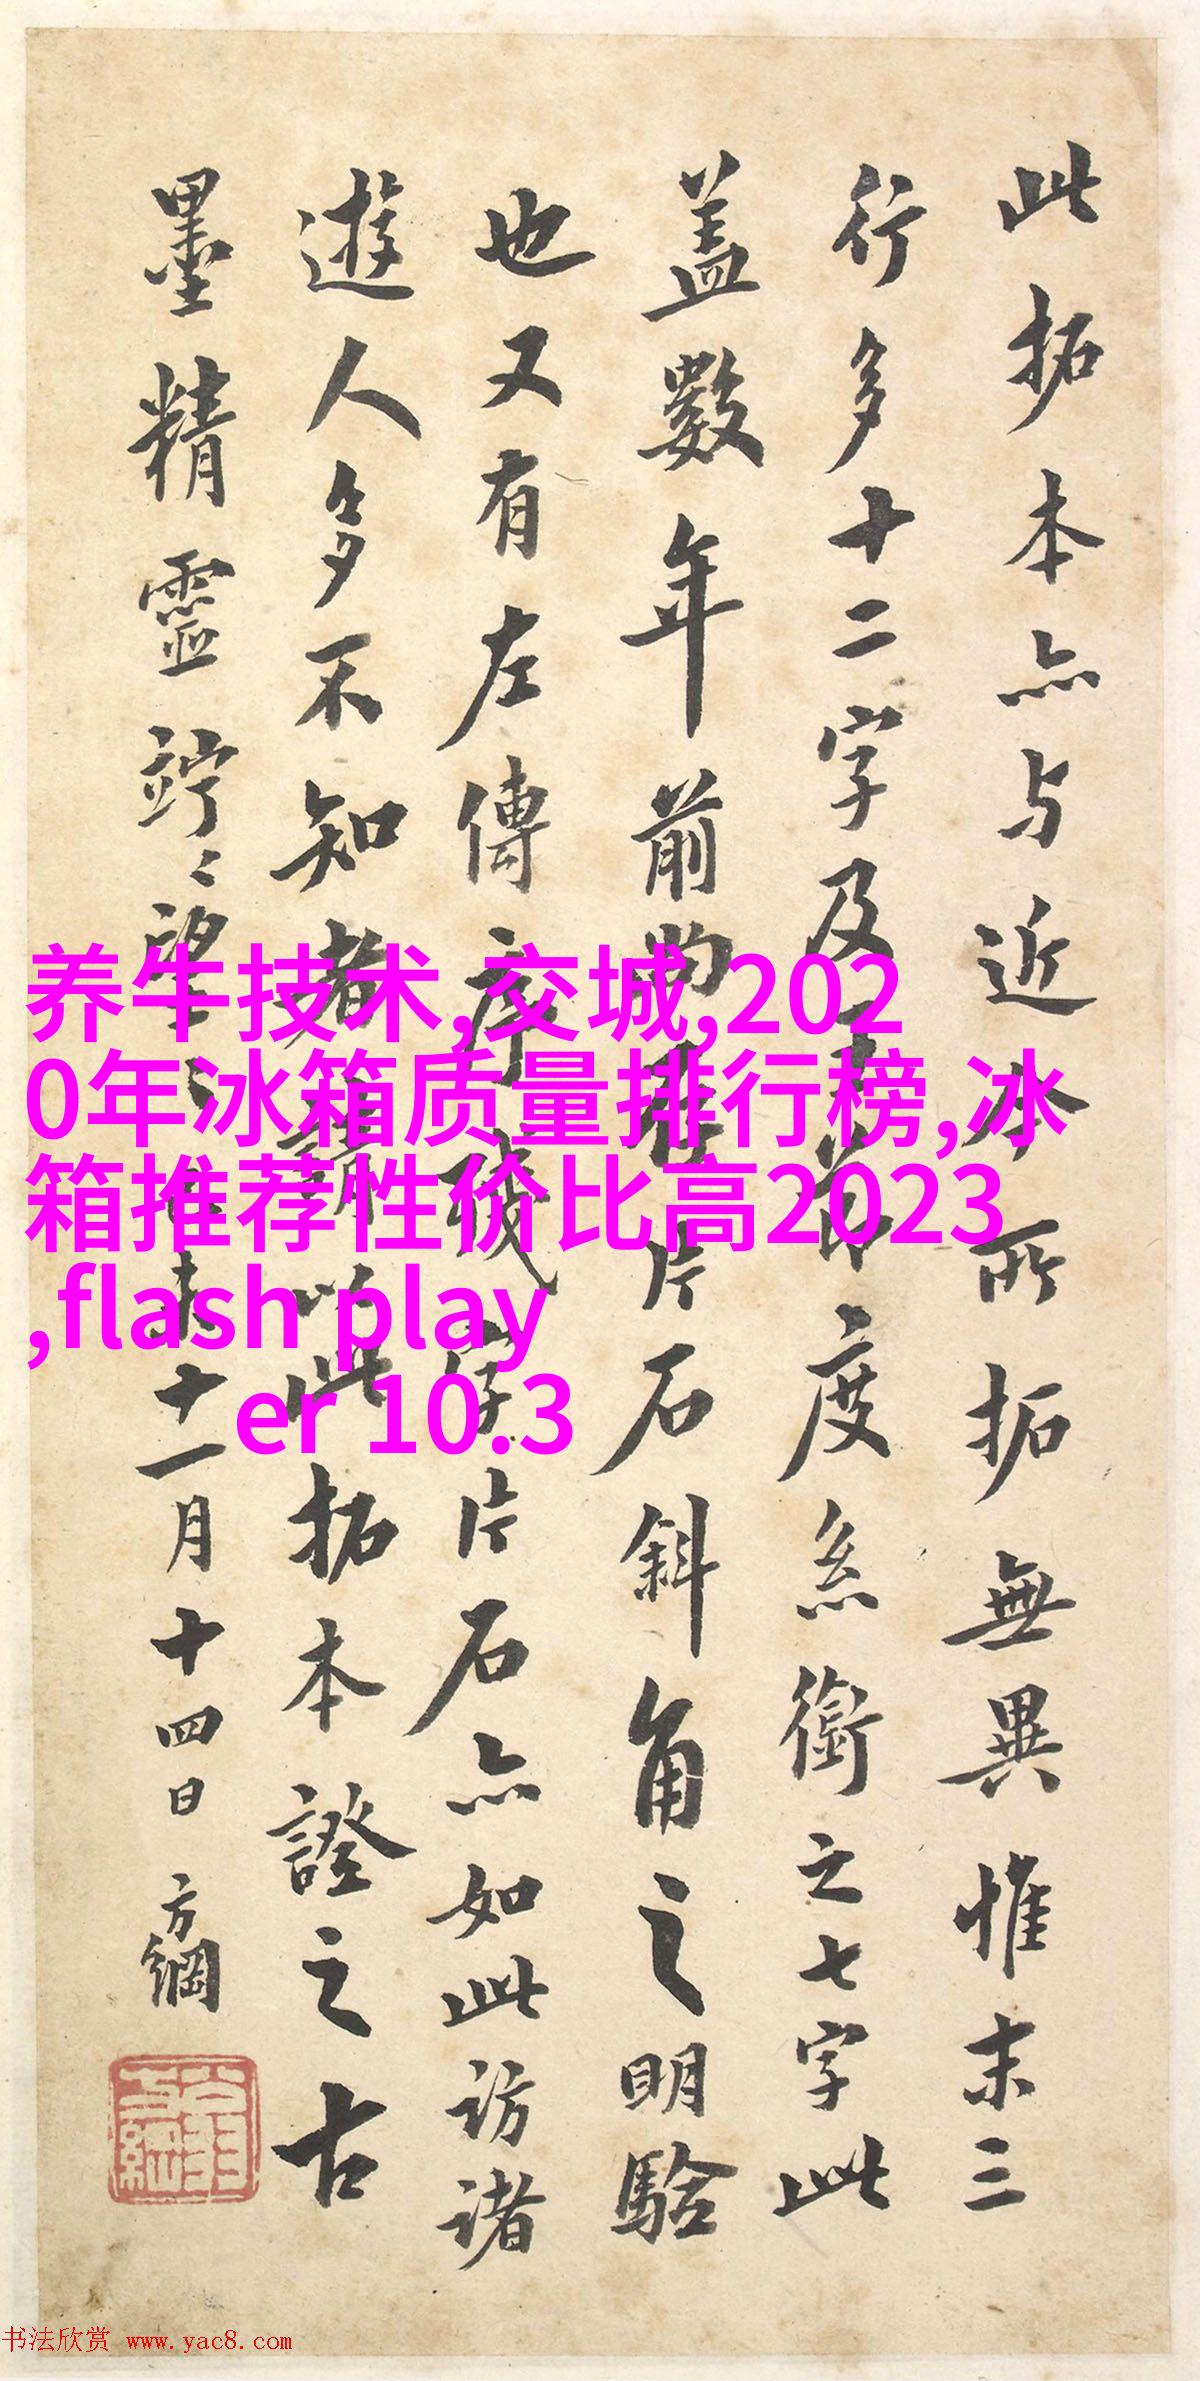 此拓本亦与近所拓無異惟末三
行多十二字及度系銜之七字此
蓋數年前片石斜角之明驗
也又有左傳序殘字片石亦如此訪諸
遊人多不知者以此拓本證之古
墨精靈竚〻望未十一月十四日方綱
养牛技术,交城,202
0年冰箱质量排行榜,冰
箱推荐性价比高2023
,flash play
er 10.3
书法欣赏 www.yac8.com